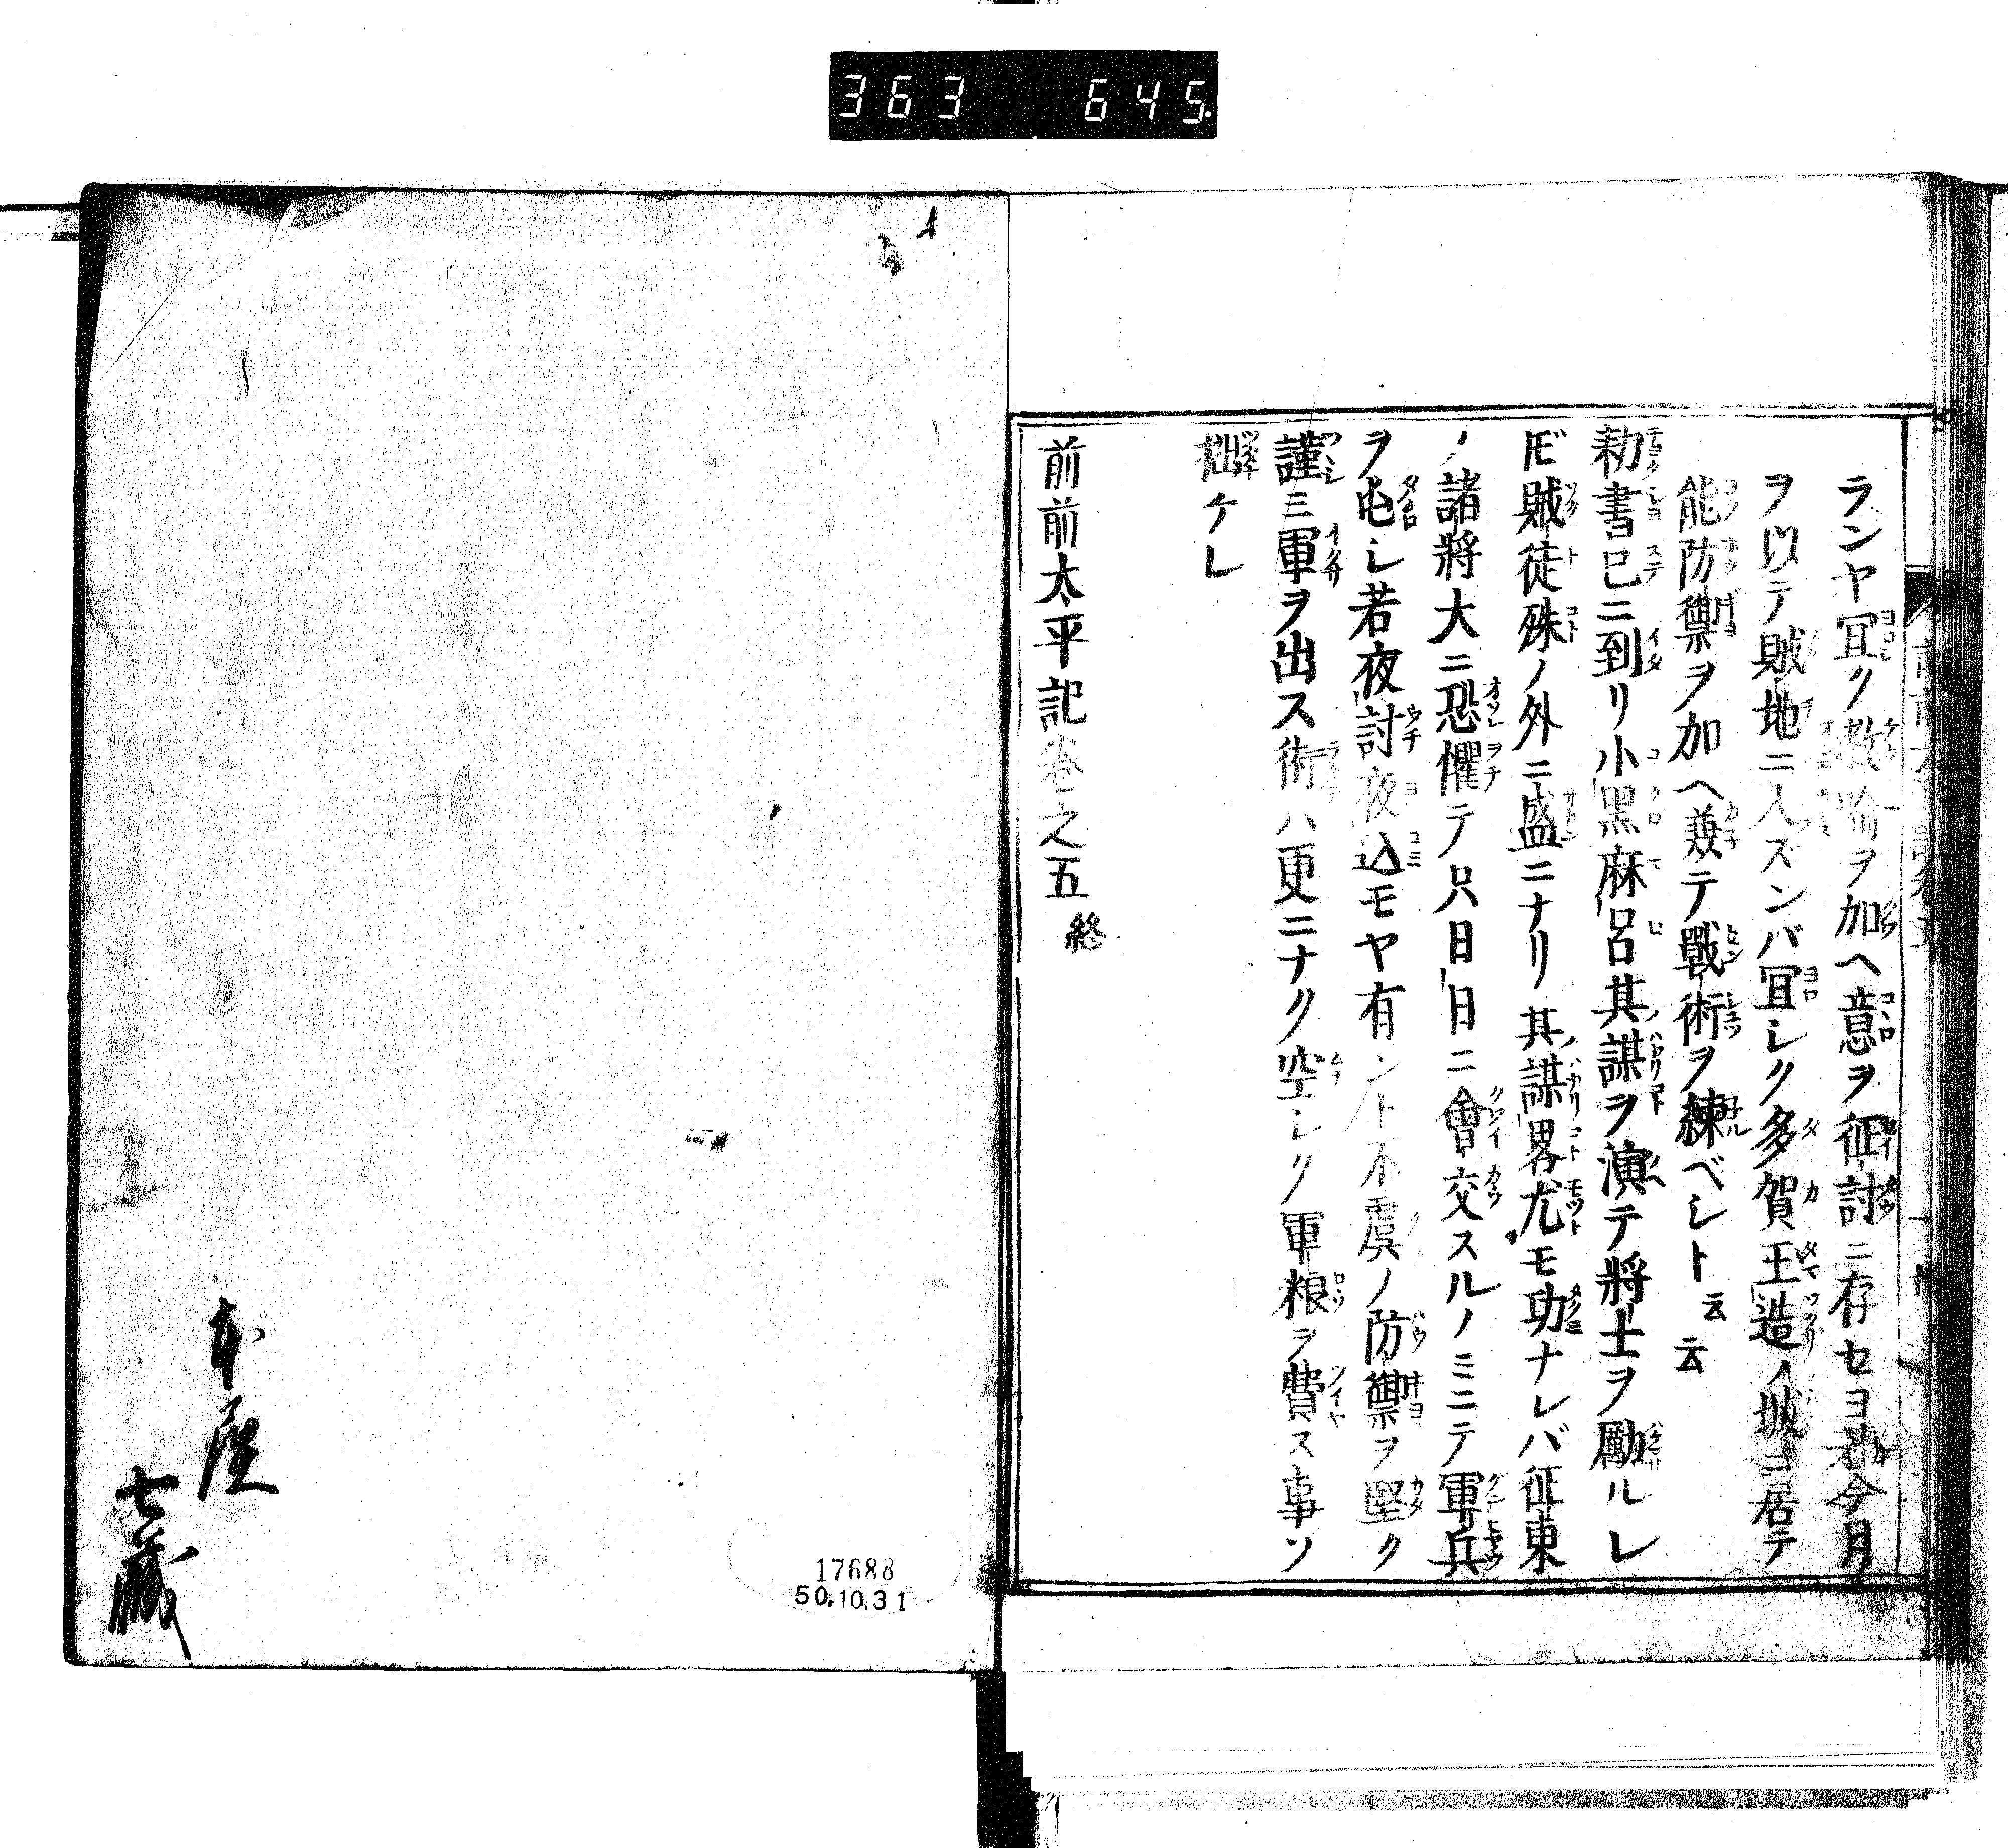 363 645
ランヤ冝ク教喩ヲ加ヘ意ヲ征討ニ存セヨ若今月
ヲ以テ賊地ニ入ズンバ冝シク多賀王造ノ城ニ居テ
能防禦ヲ加ヘ兼テ戰術ヲ練ベシト云云
勅書已ニ到リ小黒麻呂其謀ヲ演テ將士ヲ勵ルレ
𪜈賊徒殊ノ外ニ盛ニナリ其謀畧尤モ功ナレバ征東
ノ諸將大ニ恐懼テ只日日ニ會交スルノミニテ軍兵
ヲ屯シ若夜討夜込モヤ有ント不虞ノ防禦ヲ堅ク
謹ミ軍ヲ出ス術ハ更ニナク空シク軍粮ヲ費ス事ソ
拙ケレ
前前太平記卷之五終
本屋
七藏
17688
50.10.31